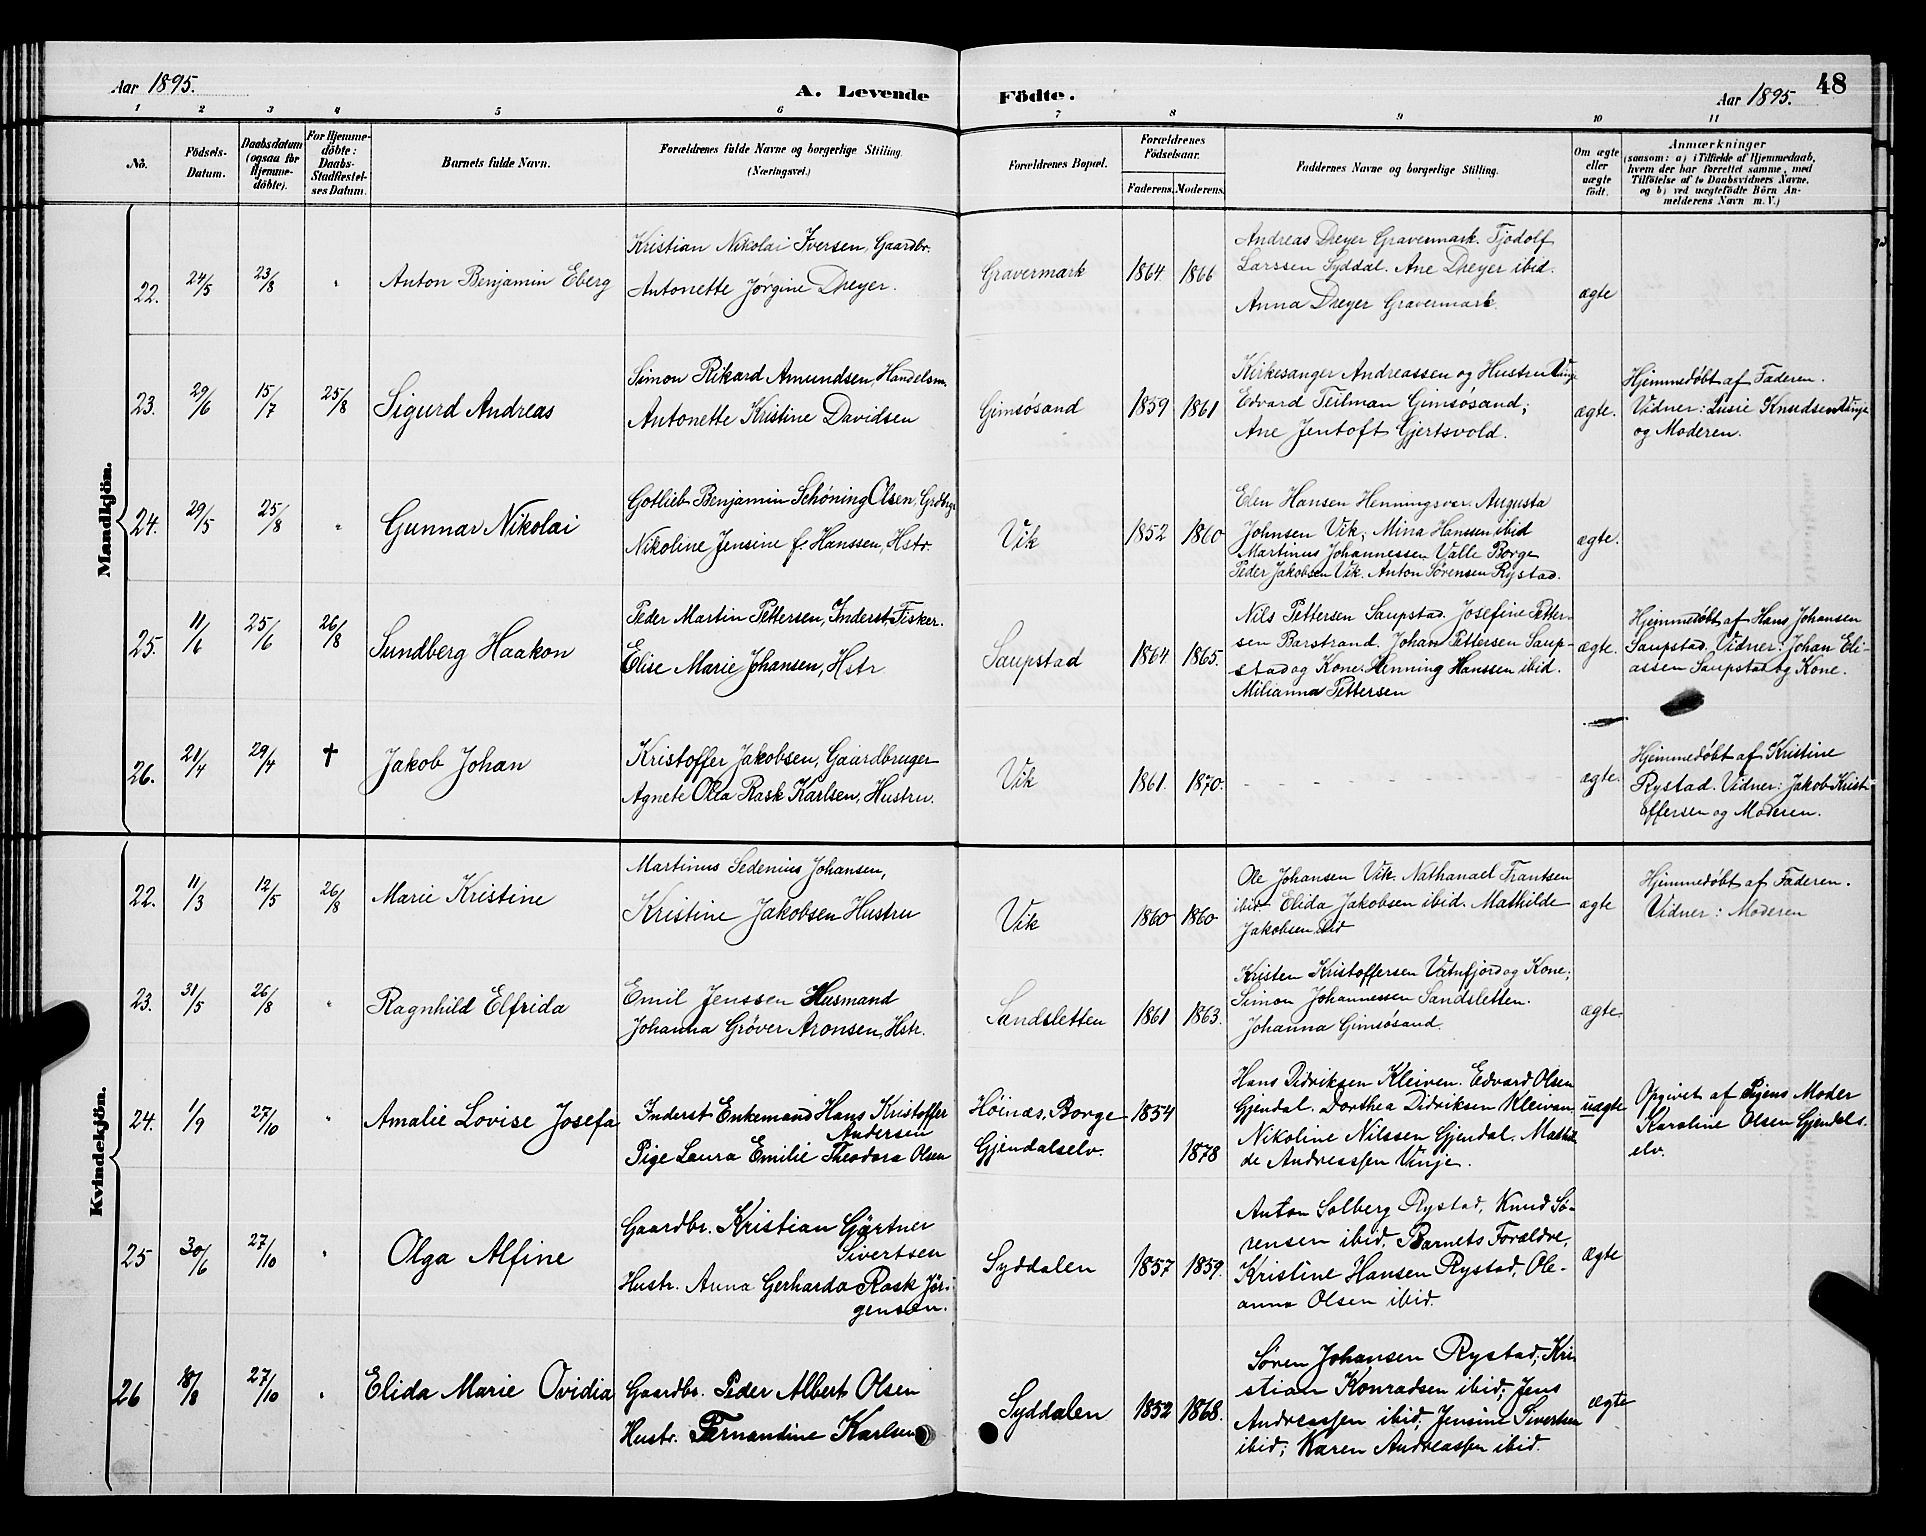 Aar 1895.
A. Levende Födte.
Aar 1895.
48
1 2 3 4 5 6 7 8 9 10 11
No.
Födsels-Datum.
Daabsdatum (ogsaa for Hjemme-döbte).
For Hjemme-döbte: Daabs-Stadfæstel-ses Datum.
Barnets fulde Navn.
Forældrenes fulde Navne og borgerlige Stilling. (Næringsvei.)
Forældrenes Bopæl.
Forældrenes Födselsaar.
Faderens. Moderens.
Faddernes Navne og borgerlige Stilling.
Om ægte eller uægte födt.
Anmærkninger
(saasom: a) i Tilfælde af Hjemmedaab,
hvem der har forrettet samme, med
Tilföielse af to Daabsvidners Navne,
og b) ved uægtefödte Börn An-
melderens Navn m. V.)
Mandkjön.
22. 24/5 23/8 " Anton Benjamin Eberg
Kristian Nikolai Iversen, Gaardbr.
Antonette Jørgine Dreyer.
Gravermark 1864 1866
Andreas Dreyer Gravermark. Tjodolf
Larssen Syddal. Ane Dreyer ibid.
Anna Dreyer Gravermark
ægte
23. 29/6 15/7 25/8 Sigurd Andreas
Simon Rikard Amundsen, Handelsm.
Antonette Kristine Davidsen
Gimsøsand 1859 1861
Kirkesanger Andreassen og Hustru Vinje
Edvard Teilman Gimsøsand;
Ane Jentoft Gjertsvold.
ægte.
Hjemmedøbt af Faderen.
Vidner: Lusie Knudsen Vinje
og Moderen.
24. 29/5 25/8 " Gunnar Nikolai
Gotlieb Benjamin Schøning Olsen, Grdbrgr
Nikoline Jensine f. Hanssen, Hstr.
Vik 1852 1860
Elen Hansen Henningsvær. Augusta
Johnsen Vik; Mina Hanssen ibid
Martinus Johannessen Valle Borge
Peder Jakobsen Vik. Anton Sørensen Rystad.
ægte.
25. 11/6 25/6 26/8 Sundberg Haakon
Peder Martin Pettersen, Inderst, Fisker.
Elise Marie Johansen, Hstr
Saupstad 1864 1865.
Nils Pettersen Saupstad. Josefine Petter-
sen Barstrand. Johan Pettersen Saup-
stad og Kone. Henning Hanssen ibid.
Milianna Pettersen
ægte.
Hjemmedøbt af Hans Johansen
Saupstad. Vidner: Johan Eli-
assen Saupstad og Kone.
26. 21/4 29/4 † Jakob Johan
Kristoffer Jakobsen, Gaardbruger
Agnete Olea Rask Karlsen, Hustru.
Vik 1861. 1870.
- - - - -
ægte.
Hjemmedøbt af Kristine
Rystad. Vidner: Jakob Krist-
offersen og Moderen.
Kvindekjön.
22. 11/3 12/5 26/8 Marie Kristine
Martinus Sedenius Johansen,
Kristine Jakobsen Hustru
Vik 1860 1860
Ole Johansen Vik. Nathanael Frantsen
ibid. Elida Jakobsen ibid. Mathilde
Jakobsen ibid
ægte
Hjemmedøbt af Faderen.
Vidner: Moderen
23. 31/5 26/8 " Ragnhild Elfrida
Emil Jenssen Husmand
Johanna Grøver Aronsen, Hstr.
Sandsletten 1861 1863.
Kristen Kristoffersen Vatnfjord og Kone;
Simon Johannessen Sandsletten.
Johanna Gimsøsand.
ægte.
24. 1/9 27/10 " Amalie Lovise Josefa
Inderst Enkemand Hans Kristoffer
Andersen
Pige Laura Emilie Theodora Olsen
Höinæs, Borge 1854
Gjendalselv. 1878
Hans Didriksen Kleiven. Edvard Olsen
Gjendal. Dorthea Didriksen Kleivan.
Nikoline Nilssen Gjendal. Mathil
de Andreassen Vinje.
uægte
Opgivet af Pigens Moder
Karoline Olsen Gjendals.
elv.
25 30/6 27/10 " Olga Alfine
Gaardbr. Kristian Gärtner
Sivertsen
Hustr. Anna Gerharda Rask Jör-
gensen.
Syddalen 1857 1859.
Anton Solberg Rystad, Knud Sö-
rensen ibid. Barnets Forældre,
Kristine Hansen Rystad, Ole-
anna Olsen ibid.
ægte
26 18/8 27/10 " Elida Marie Ovidia
Gaardbr. Peder Albert Olsen
Hustr. Fernandine Karlsen
Syddalen 1852 1868.
Sören Johansen Rystad; Kri-
stian Konradsen ibid; Jens
Andreassen ibid; Jensine Sivertsen
ibid; Karen Andreassen ibid.
ægte